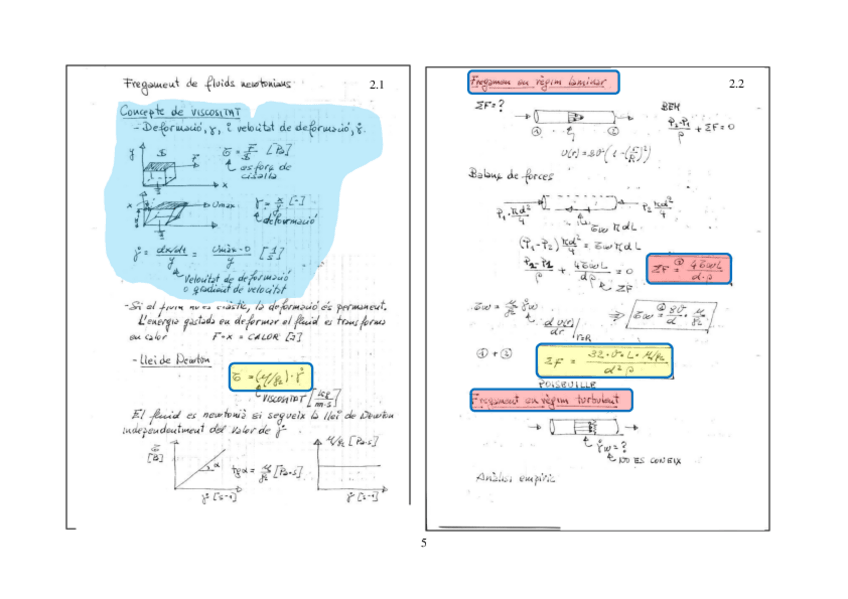 Fregament de fluids newtonians 2.1
Concepte de VISCOSITAT
- Deformació, γ, i velocitat de deformació, γ̇.
y
F
x
σ = F/S [Pa]
esforç de
cisalla
x
umax
γ = x/y [-]
deformació
γ̇ = dx/dt / y = umax-0 / y [1/s]
Velocitat de deformació
o gradient de velocitat
- Si el fluid no és elàstic, la deformació és permanent.
L'energia gastada en deformar el fluid es transforma
en calor F·x = CALOR [J]
- Llei de Newton
σ = (μ/gc)·γ̇
VISCOSITAT [kg/m·s]
El fluid es newtonià si segueix la llei de Newton
independentment del valor de γ̇
σ [Pa]
α
γ̇ [s-1]
tg α = μ/gc [Pa·s]
μ/gc [Pa·s]
γ̇ [s-1]
Fregament en règim laminar 2.2
ΣF = ?
① ②
BEM
P2-P1/ρ + ΣF = 0
Balanç de forces
P1·πd²/4
P2 πd²/4
σw π d L
(P1-P2) πd²/4 = σw π d L
P2-P1/ρ + 4σwL/dρ = 0
ΣF
ΣF =① 4σwL/d·ρ
σw = μ/gc γ̇w
d v(r)/dr | r=R
⇒ σw =② 8v/d · μ/gc
① + ②
ΣF = 32·v·L·μ/gc / d²ρ
POISEUILLE
Fregament en règim turbulent
γ̇w = ?
NO ES CONEIX
Anàlisi empíric
5